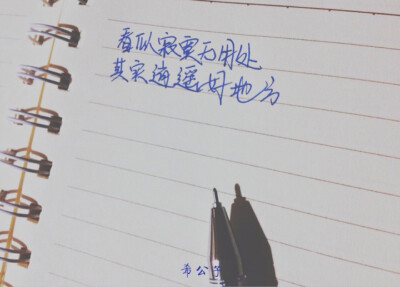 看似寂寞无用处
其实逍遥好地方
希公子